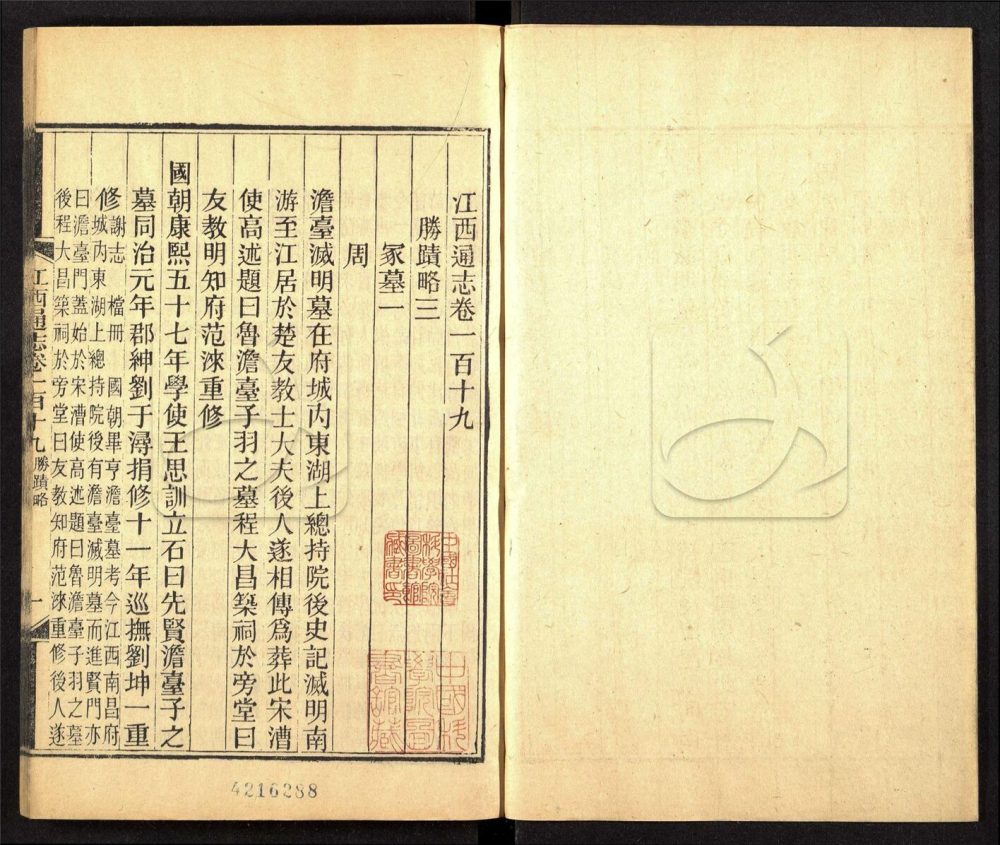 江西通志卷一百十九
勝蹟略三
冢墓一
周
澹臺滅明墓在府城內東湖上總持院後史記滅明南
游至江居於楚友教士大夫後人遂相傳爲葬此宋漕
使高述題曰魯澹臺子羽之墓程大昌築祠於旁堂曰
友教明知府范淶重修
國朝康熙五十七年學使王思訓立石曰先賢澹臺子之
墓同治元年郡紳劉于潯捐修十一年巡撫劉坤一重
修
謝志 檔冊 國朝畢亨澹臺墓考今江西南昌府
城內東湖上總持院後有澹臺滅明墓而進賢門亦
曰澹臺門蓋始於宋漕使高述題曰魯澹臺子羽之墓
後程大昌築祠於旁堂曰友教知府范淶重修後人遂
江西通志卷一百十九 勝蹟略 一
中國科學院圖書館藏
4216288